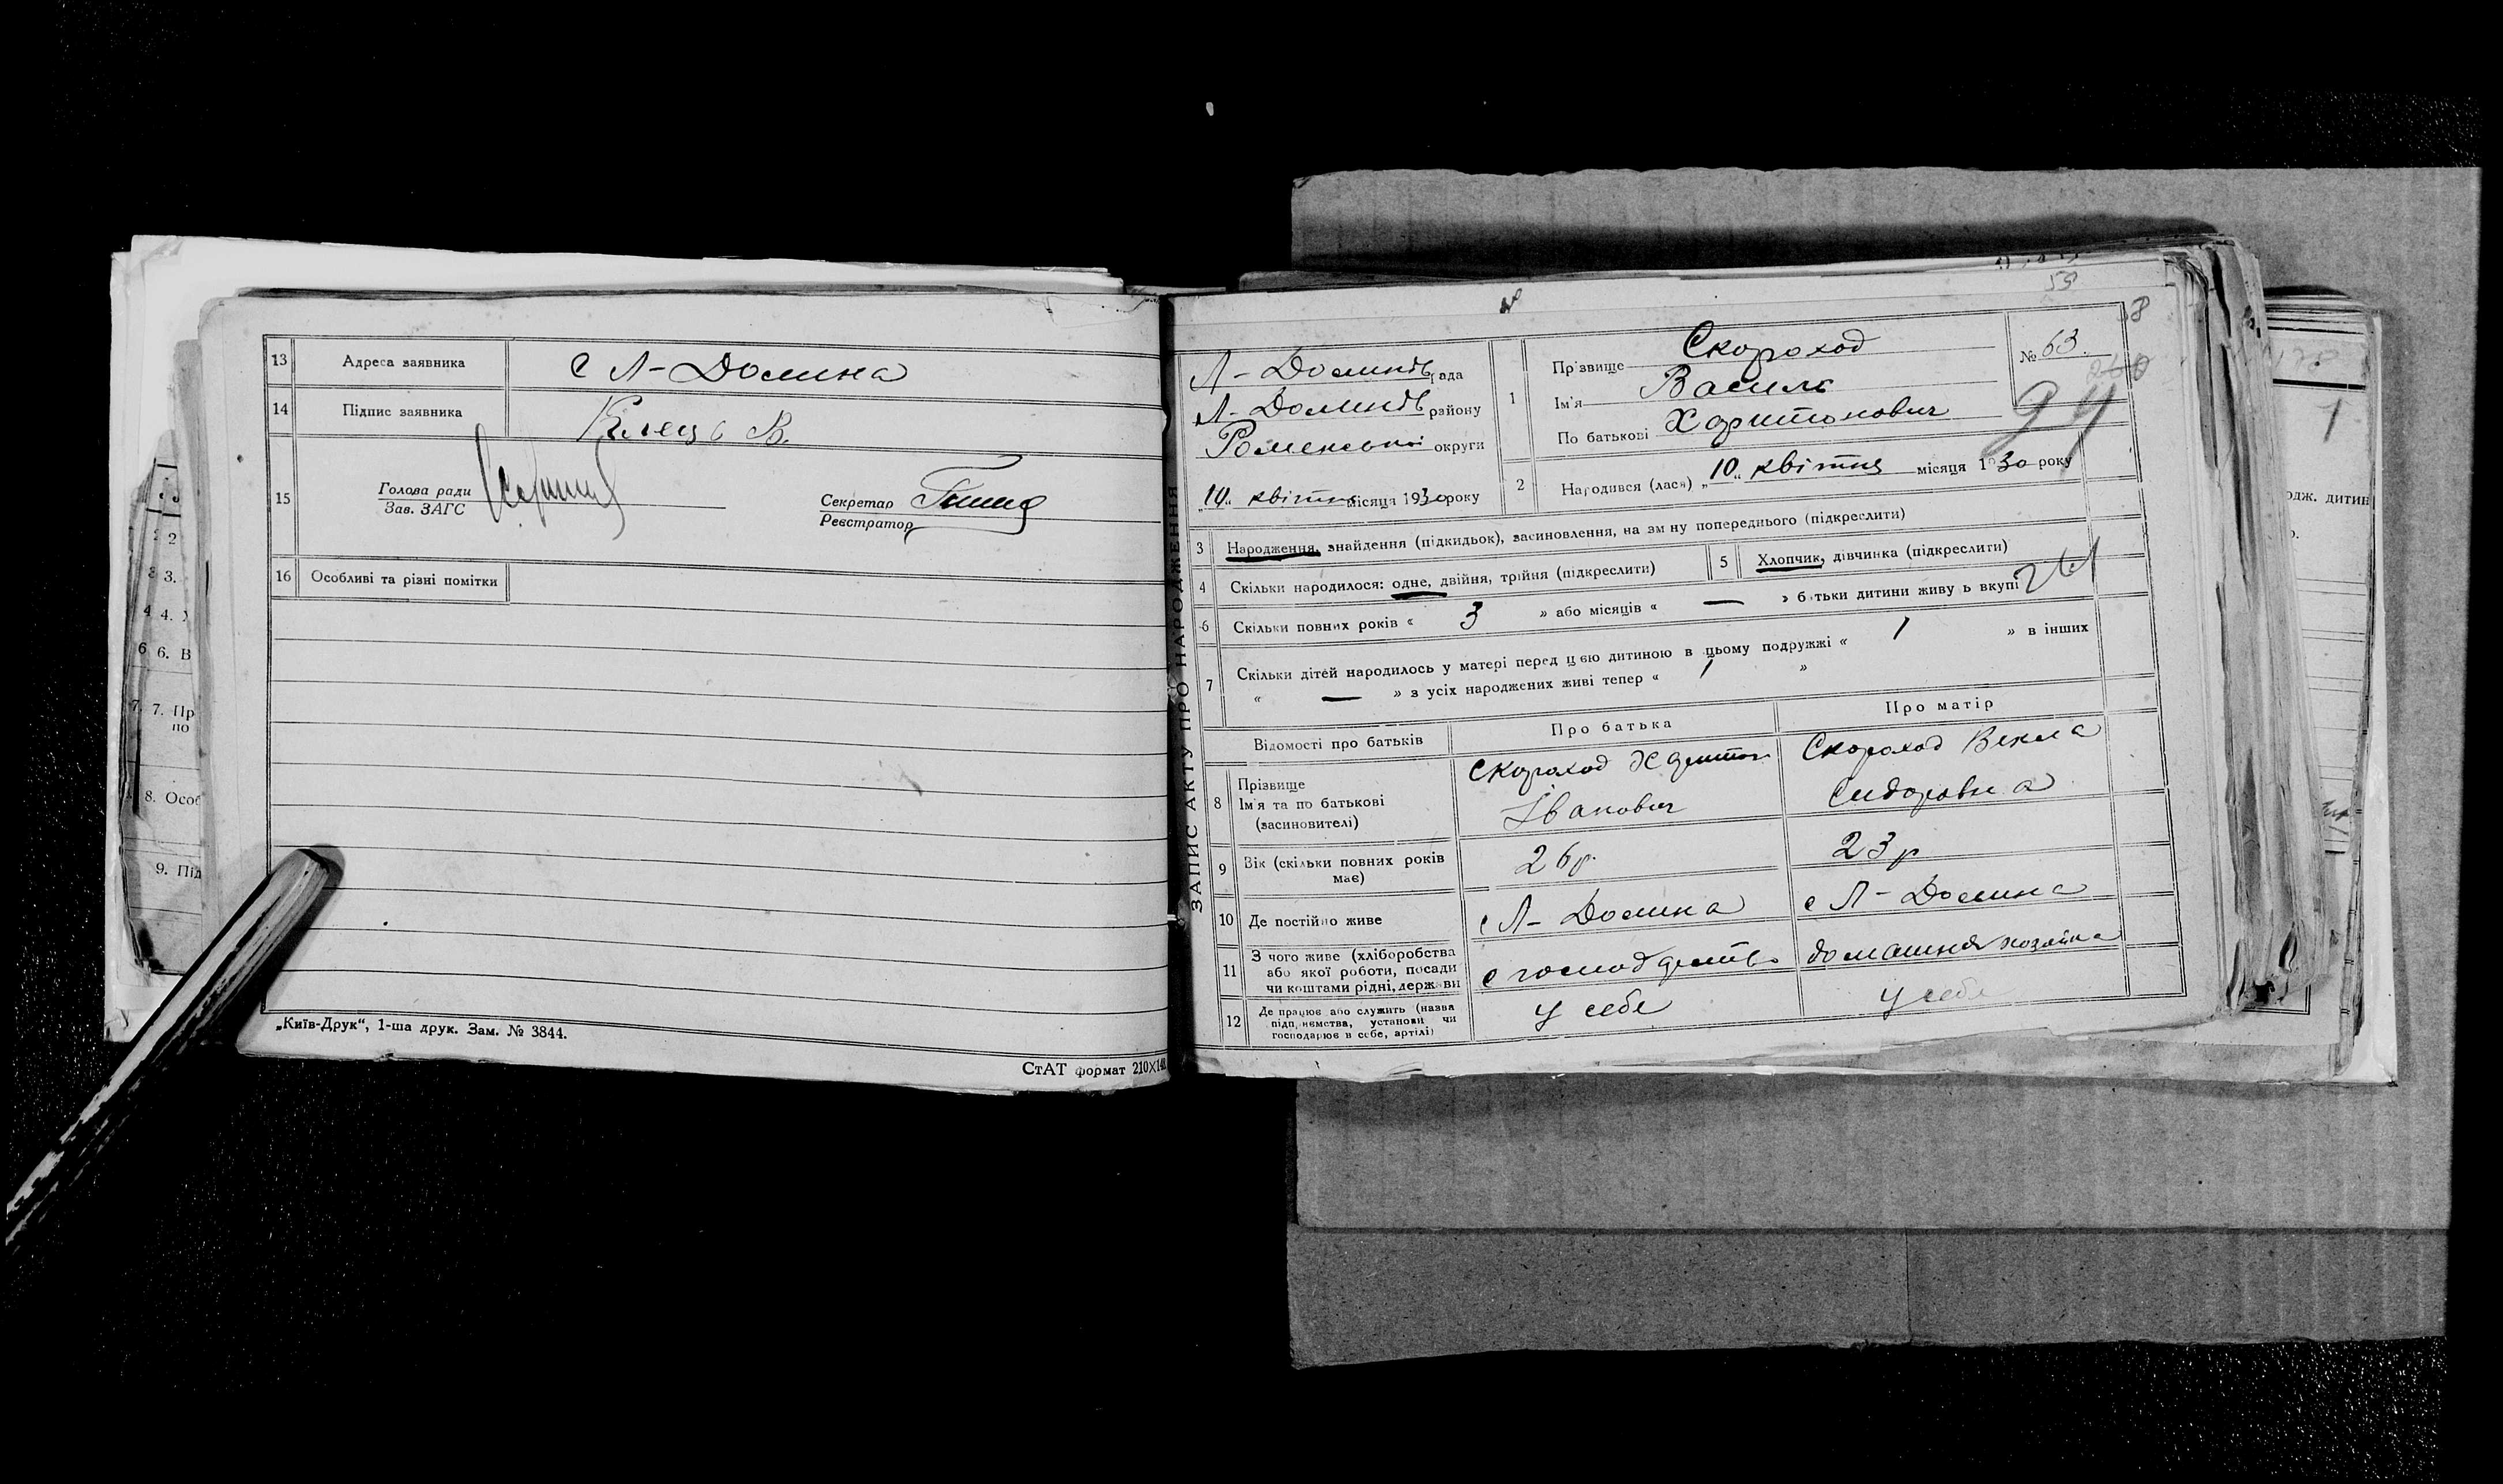 13 Адреса заявника с Л-Долина
14 Підпис заявника В.
15 Голова ради
Зав. ЗАГС
Секретар
Реєстратор
16 Особливі та різні помітки
„Київ-Друк“, 1-ша друк. Зам. № 3844.
СтАТ формат 210X148
2
3.
4.
6. В
7. Пр
по
8. Особ
9. Під
ЗАПИС АКТУ ПРО НАРОДЖЕННЯ
59
Л-Долинсь рада
Л-Долинсь району
Роменської округи
„10„ квітня місяця 1930 року
1 Прізвище Скороход
Ім'я Василь
По батькові Харитонович
№ 63.
94
2 Народився (лася) „10„ квітня місяця 1930 року
3 Народження, знайдення (підкидьок), засиновлення, на зміну попереднього (підкреслити)
4 Скільки народилося: одне, двійня, трійня (підкреслити)
5 Хлопчик, дівчинка (підкреслити)
6 Скільки повних років « 3 » або місяців « — » батьки дитини живуть вкупі
7 Скільки дітей народилось у матері перед цією дитиною в цьому подружжі « 1 » в інших
« — » з усіх народжених живі тепер « 1 »
Відомості про батьків Про батька Про матір
8 Прізвище
Ім'я та по батькові
(засиновителі)
Скороход Харитон
Іванович
Скороход Векла
Сидоровна
9 Вік (скільки повних років
має)
26р. 23р
10 Де постійно живе с Л-Долина с Л-Долина
11 З чого живе (хліборобства
або якої роботи, посади
чи коштами рідні, держави
с господарство домашня хозяйка
12 Де працює або служить (назва
підприємства, установи чи
господарює в себе, артілі)
у себе у себе
одж. дитин